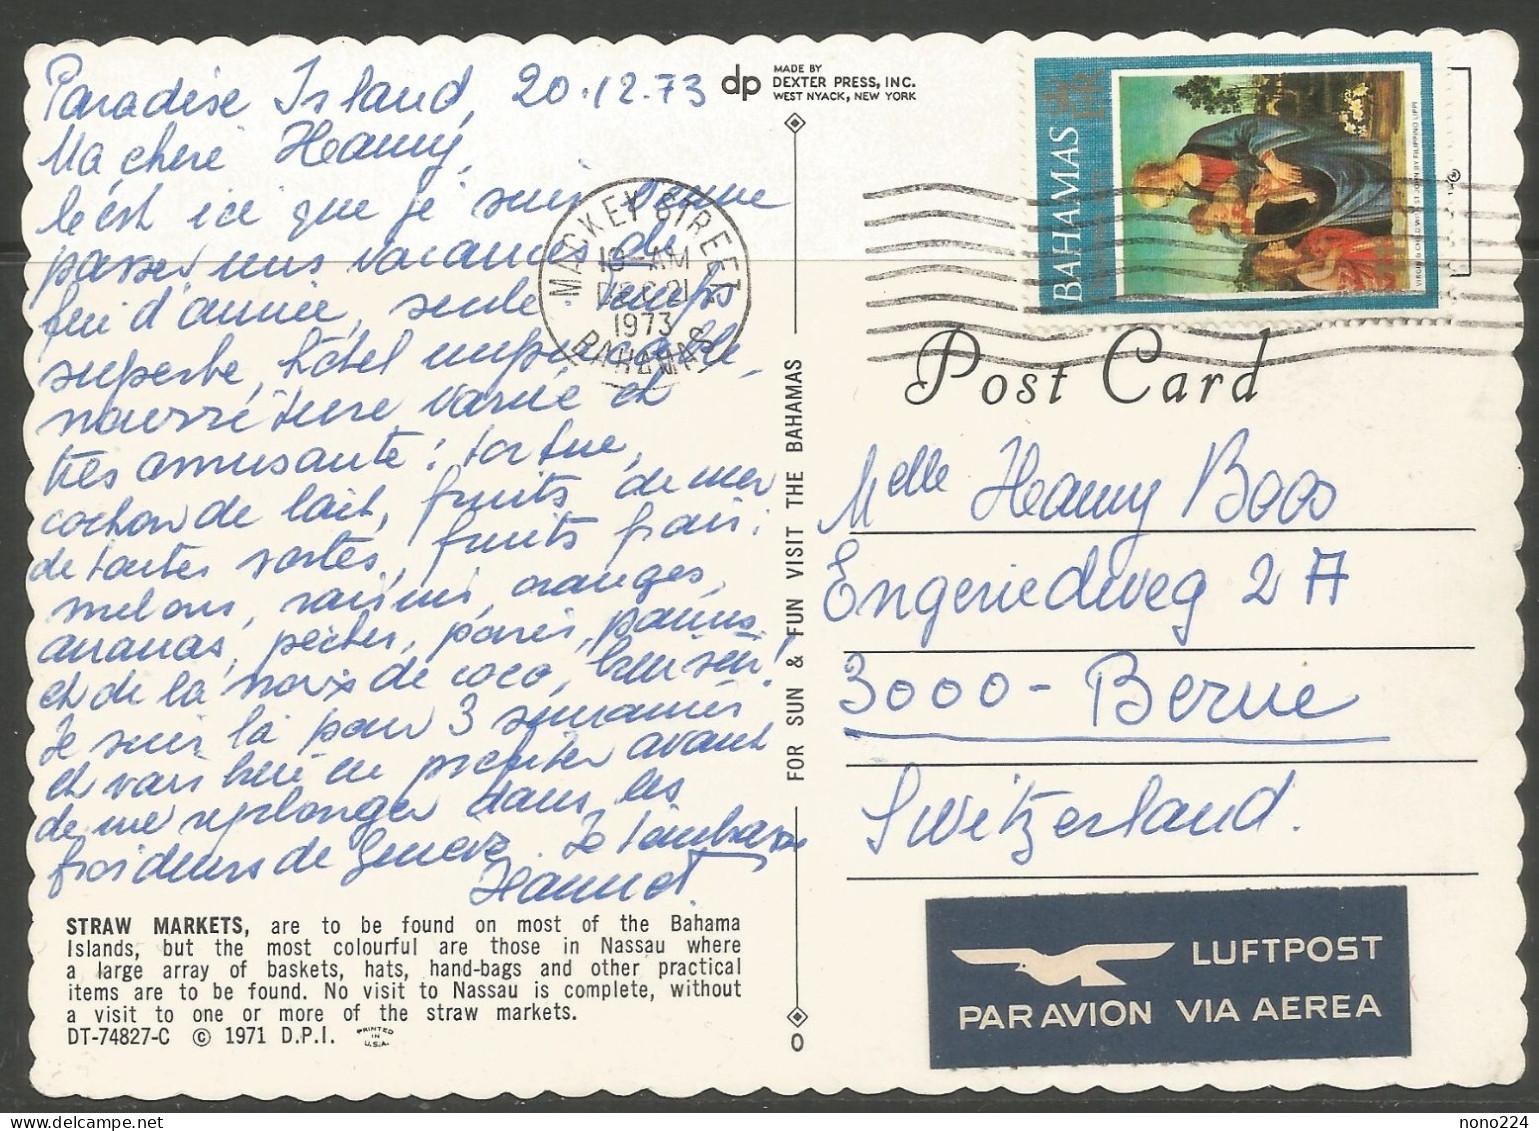 Paradise Island, 20.12.73
Ma chère Hanny,
c'est ici que je suis venue
passer mes vacances de
fin d'année, seule, temps
superbe, hôtel impeccable,
nourriture variée et
très amusante: tortue,
cochon de lait, fruits de mer
de toutes sortes, fruits frais:
melons, raisins, oranges,
ananas, pêches, poires, pommes
et de la noix de coco, bien sûr!
Je suis là pour 3 semaines
et vais bien en profiter avant
de me replonger dans les
froideurs de Genève. Je t'embrasse
STRAW MARKETS, are to be found on most of the Bahama
Islands, but the most colourful are those in Nassau where
a large array of baskets, hats, hand-bags and other practical
items are to be found. No visit to Nassau is complete, without
a visit to one or more of the straw markets.
DT-74827-C © 1971 D.P.I. PRINTED IN U.S.A.
dp MADE BY
DEXTER PRESS, INC.
WEST NYACK, NEW YORK
FOR SUN & FUN VISIT THE BAHAMAS
0
MACKEY STREET
10 - AM
DEC 21
1973
BAHAMAS
BAHAMAS
VIRGIN & CHILD WITH ST. JOHN BY FILIPPINO LIPPI
®
Post Card
Melle Hanny Boos
Engeriedweg 2A
3000 - Berne
Switzerland.
LUFTPOST
PAR AVION VIA AEREA
nono224